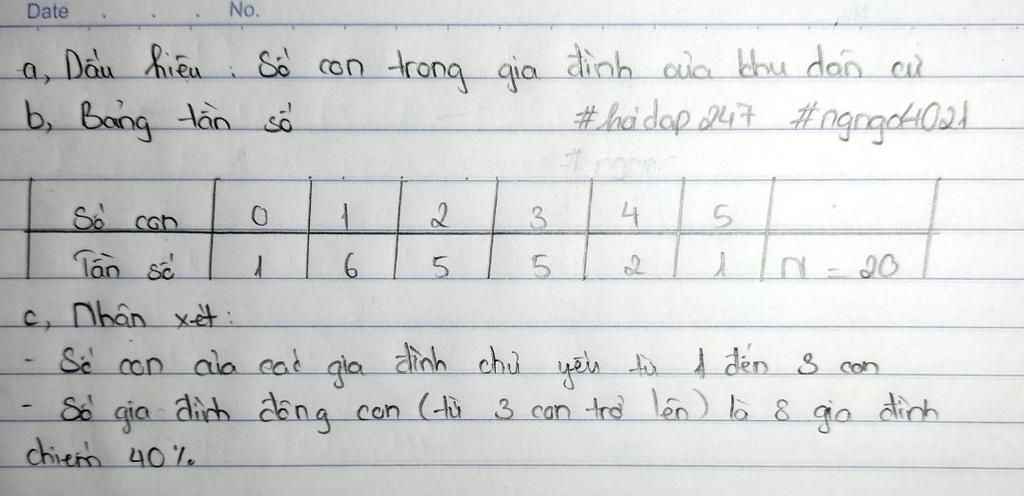 Date . . . No.
a, Dấu hiệu : Số con trong gia đình của khu dân cư
b, Bảng tần số #hoidap247 #ngngo4021
Số con 0 1 2 3 4 5
Tần số 1 6 5 5 2 1 N = 20
c, Nhận xét :
- Số con của các gia đình chủ yếu từ 1 đến 3 con
- Số gia đình đông con (từ 3 con trở lên) là 8 gia đình
chiếm 40%.